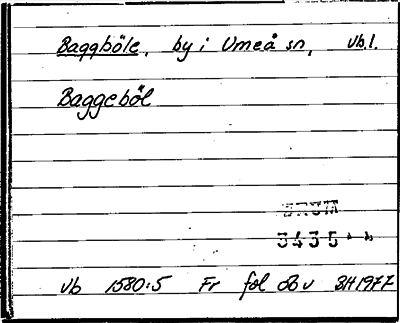 Baggböle, by i Umeå sn, Vb.l.
Baggeböl
5435
Vb 1580:5 Fr fol 08 v BH 1977